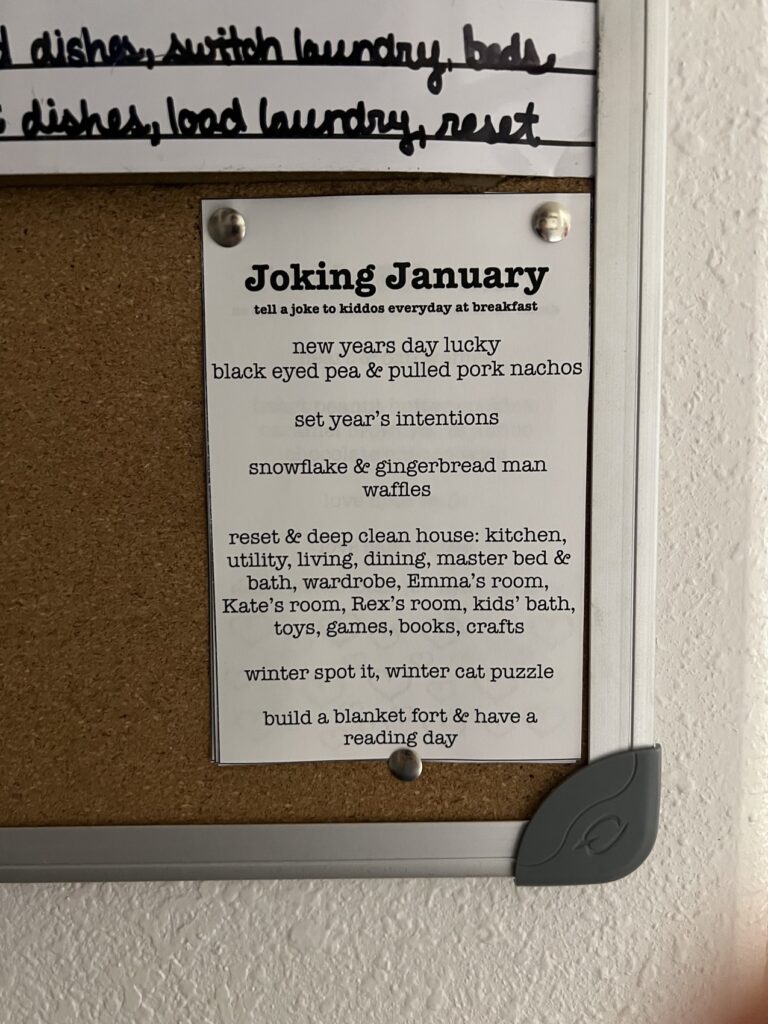 dishes, switch laundry, beds,
dishes, load laundry, reset
Joking January
tell a joke to kiddos everyday at breakfast
new years day lucky
black eyed pea & pulled pork nachos
set year's intentions
snowflake & gingerbread man
waffles
reset & deep clean house: kitchen,
utility, living, dining, master bed &
bath, wardrobe, Emma's room,
Kate's room, Rex's room, kids' bath,
toys, games, books, crafts
winter spot it, winter cat puzzle
build a blanket fort & have a
reading day